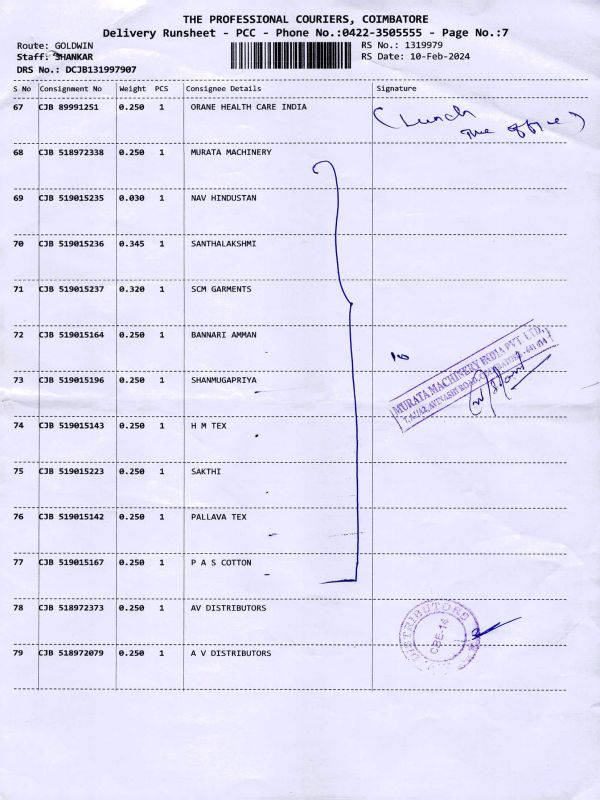 THE PROFESSIONAL COURIERS, COIMBATORE
Delivery Runsheet - PCC - Phone No.:0422-3505555 - Page No.:7
Route: GOLDWIN
RS No.: 1319979
Staff: SHANKAR
RS Date: 10-Feb-2024
DRS No.: DCJB131997907
S No Consignment No Weight PCS Consignee Details Signature
67 CJB 89991251 0.250 1 ORANE HEALTH CARE INDIA
(Lunch
office)
68 CJB 518972338 0.250 1 MURATA MACHINERY
69 CJB 519015235 0.030 1 NAV HINDUSTAN
70 CJB 519015236 0.345 1 SANTHALAKSHMI
71 CJB 519015237 0.320 1 SCM GARMENTS
72 CJB 519015164 0.250 1 BANNARI AMMAN
10
MURATA MACHINERY INDIA PVT. LTD.,
AVINASHI ROAD, COIMBATORE - 641 014
73 CJB 519015196 0.250 1 SHANMUGAPRIYA
74 CJB 519015143 0.250 1 H M TEX
75 CJB 519015223 0.250 1 SAKTHI
76 CJB 519015142 0.250 1 PALLAVA TEX
77 CJB 519015167 0.250 1 P A S COTTON
78 CJB 518972373 0.250 1 AV DISTRIBUTORS
DISTRIBUTORS
CBE-14
79 CJB 518972079 0.250 1 A V DISTRIBUTORS